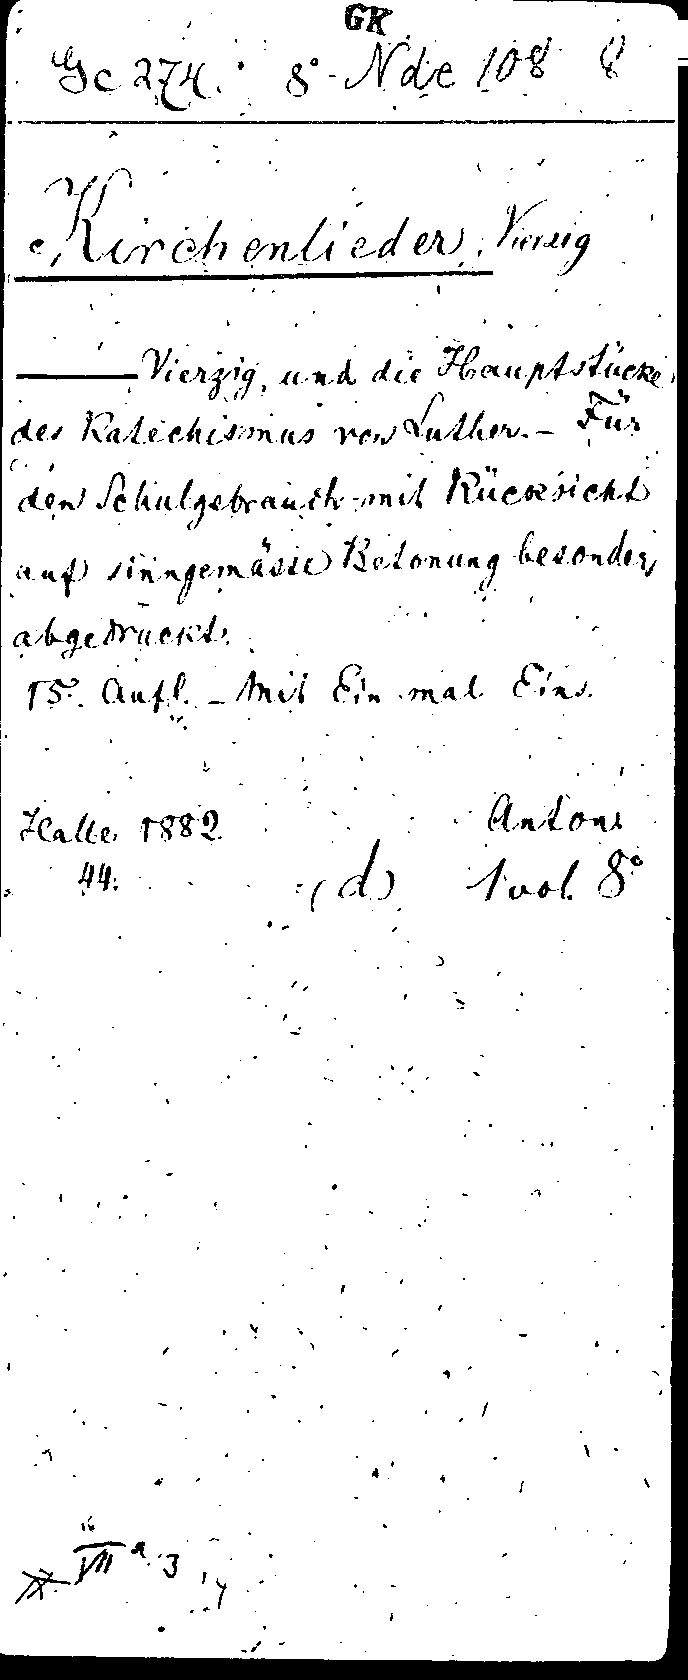 GK
Gc 274. 8° Nde 108 8
Kirchenlieder, Vierzig
——— Vierzig, und die Hauptstücke
des Katechismus von Luther. – Für
den Schulgebrauch mit Rücksicht
auf sinngemässe Betonung besonders
abgedruckt.
15. Aufl. – Mit Ein mal Eins.
Halle 1882 Anton
44. (d) 1 vol. 8°
VII a 3